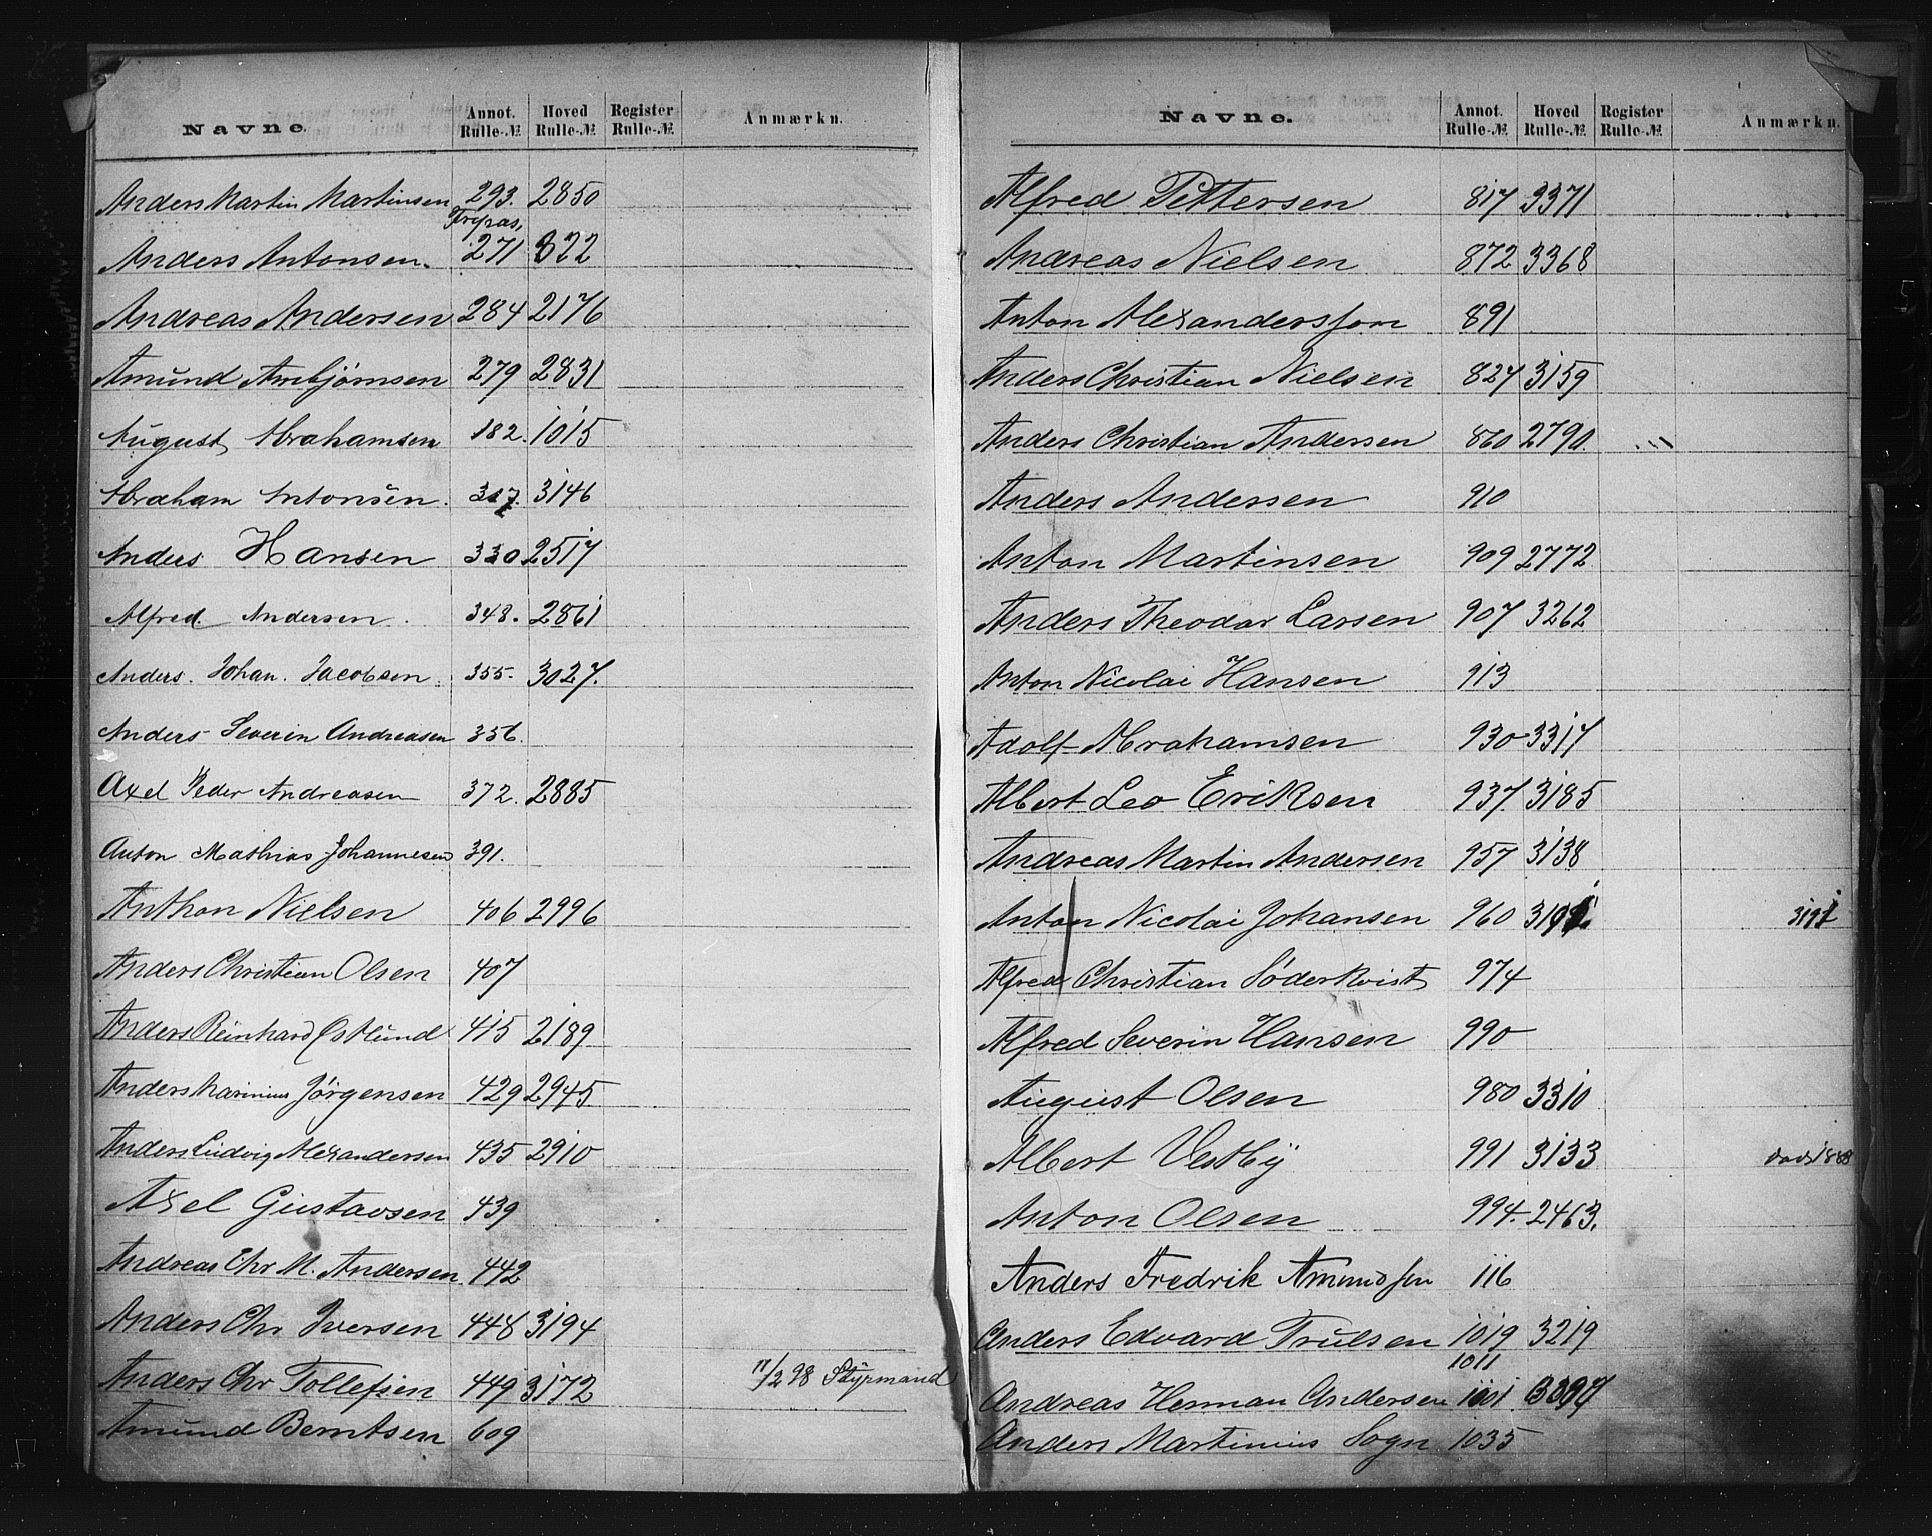 Navne. Annot. Rulle-№ Hoved Rulle-№ Register Rulle-№ Anmærkn.
Anders Martin Martinsen 293. 2850
Anders Antonsen. 271 822
Andreas Andersen 284 2176
Amund Arnbjørnsen 279 2831
August Abrahamsen 182. 1015
Abraham Antonsen. 317. 3146
Anders Hansen 330 2517
Alfred Andersen. 348. 2861
Anders. Johan. Jacobsen. 355. 3027.
Anders Severin Andreasen 356.
Axel Peder Andreasen 372. 2885
Anton Mathias Johannesen 391.
Anthon Nielsen 406 2996
Anders Christian Olsen 407
Anders Reinhard Østlund 415 2189
Anders Marinius Jørgensen 429 2945
Anders Ludvig Alexandersen 435 2910
Axel Gustavsen 439
Andreas Chr M. Andersen 442
Anders Chr Iversen 448 3194
Anders Chr Tollefsen 449 3172 17/2 98 Styrmand
Amund Berntsen 609
Navne. Annot. Rulle-№ Hoved Rulle-№ Register Rulle-№ Anmærkn.
Alfred Pettersen 817 3371
Andreas Nielsen 872 3368
Anton Alexandersson 891
Anders Christian Nielsen 824 3159
Anders Christian Andersen 860 2790.
Anders Andersen 910
Anton Martinsen 909 2772
Anders Theodor Larsen 907 3262
Anton Nicolai Hansen 913
Adolf Abrahamsen 930 3317
Albert Leo Eriksen 937. 3185
Andreas Martin Andersen 957 3138
Anton Nicolai Johansen 960 3191 3191
Alfred Christian Söderkvist 974
Alfred Severin Hansen 990
August Olsen 980 3310
Albert Vestby 991 3133 død 1888
Anton Olsen 994. 2463.
Anders Fredrik Amundsen 116
Anders Edvard Trulsen 1019 3219
1011
Andreas Herman Andersen 1001 3397
Anders Martinius Sogn 1035